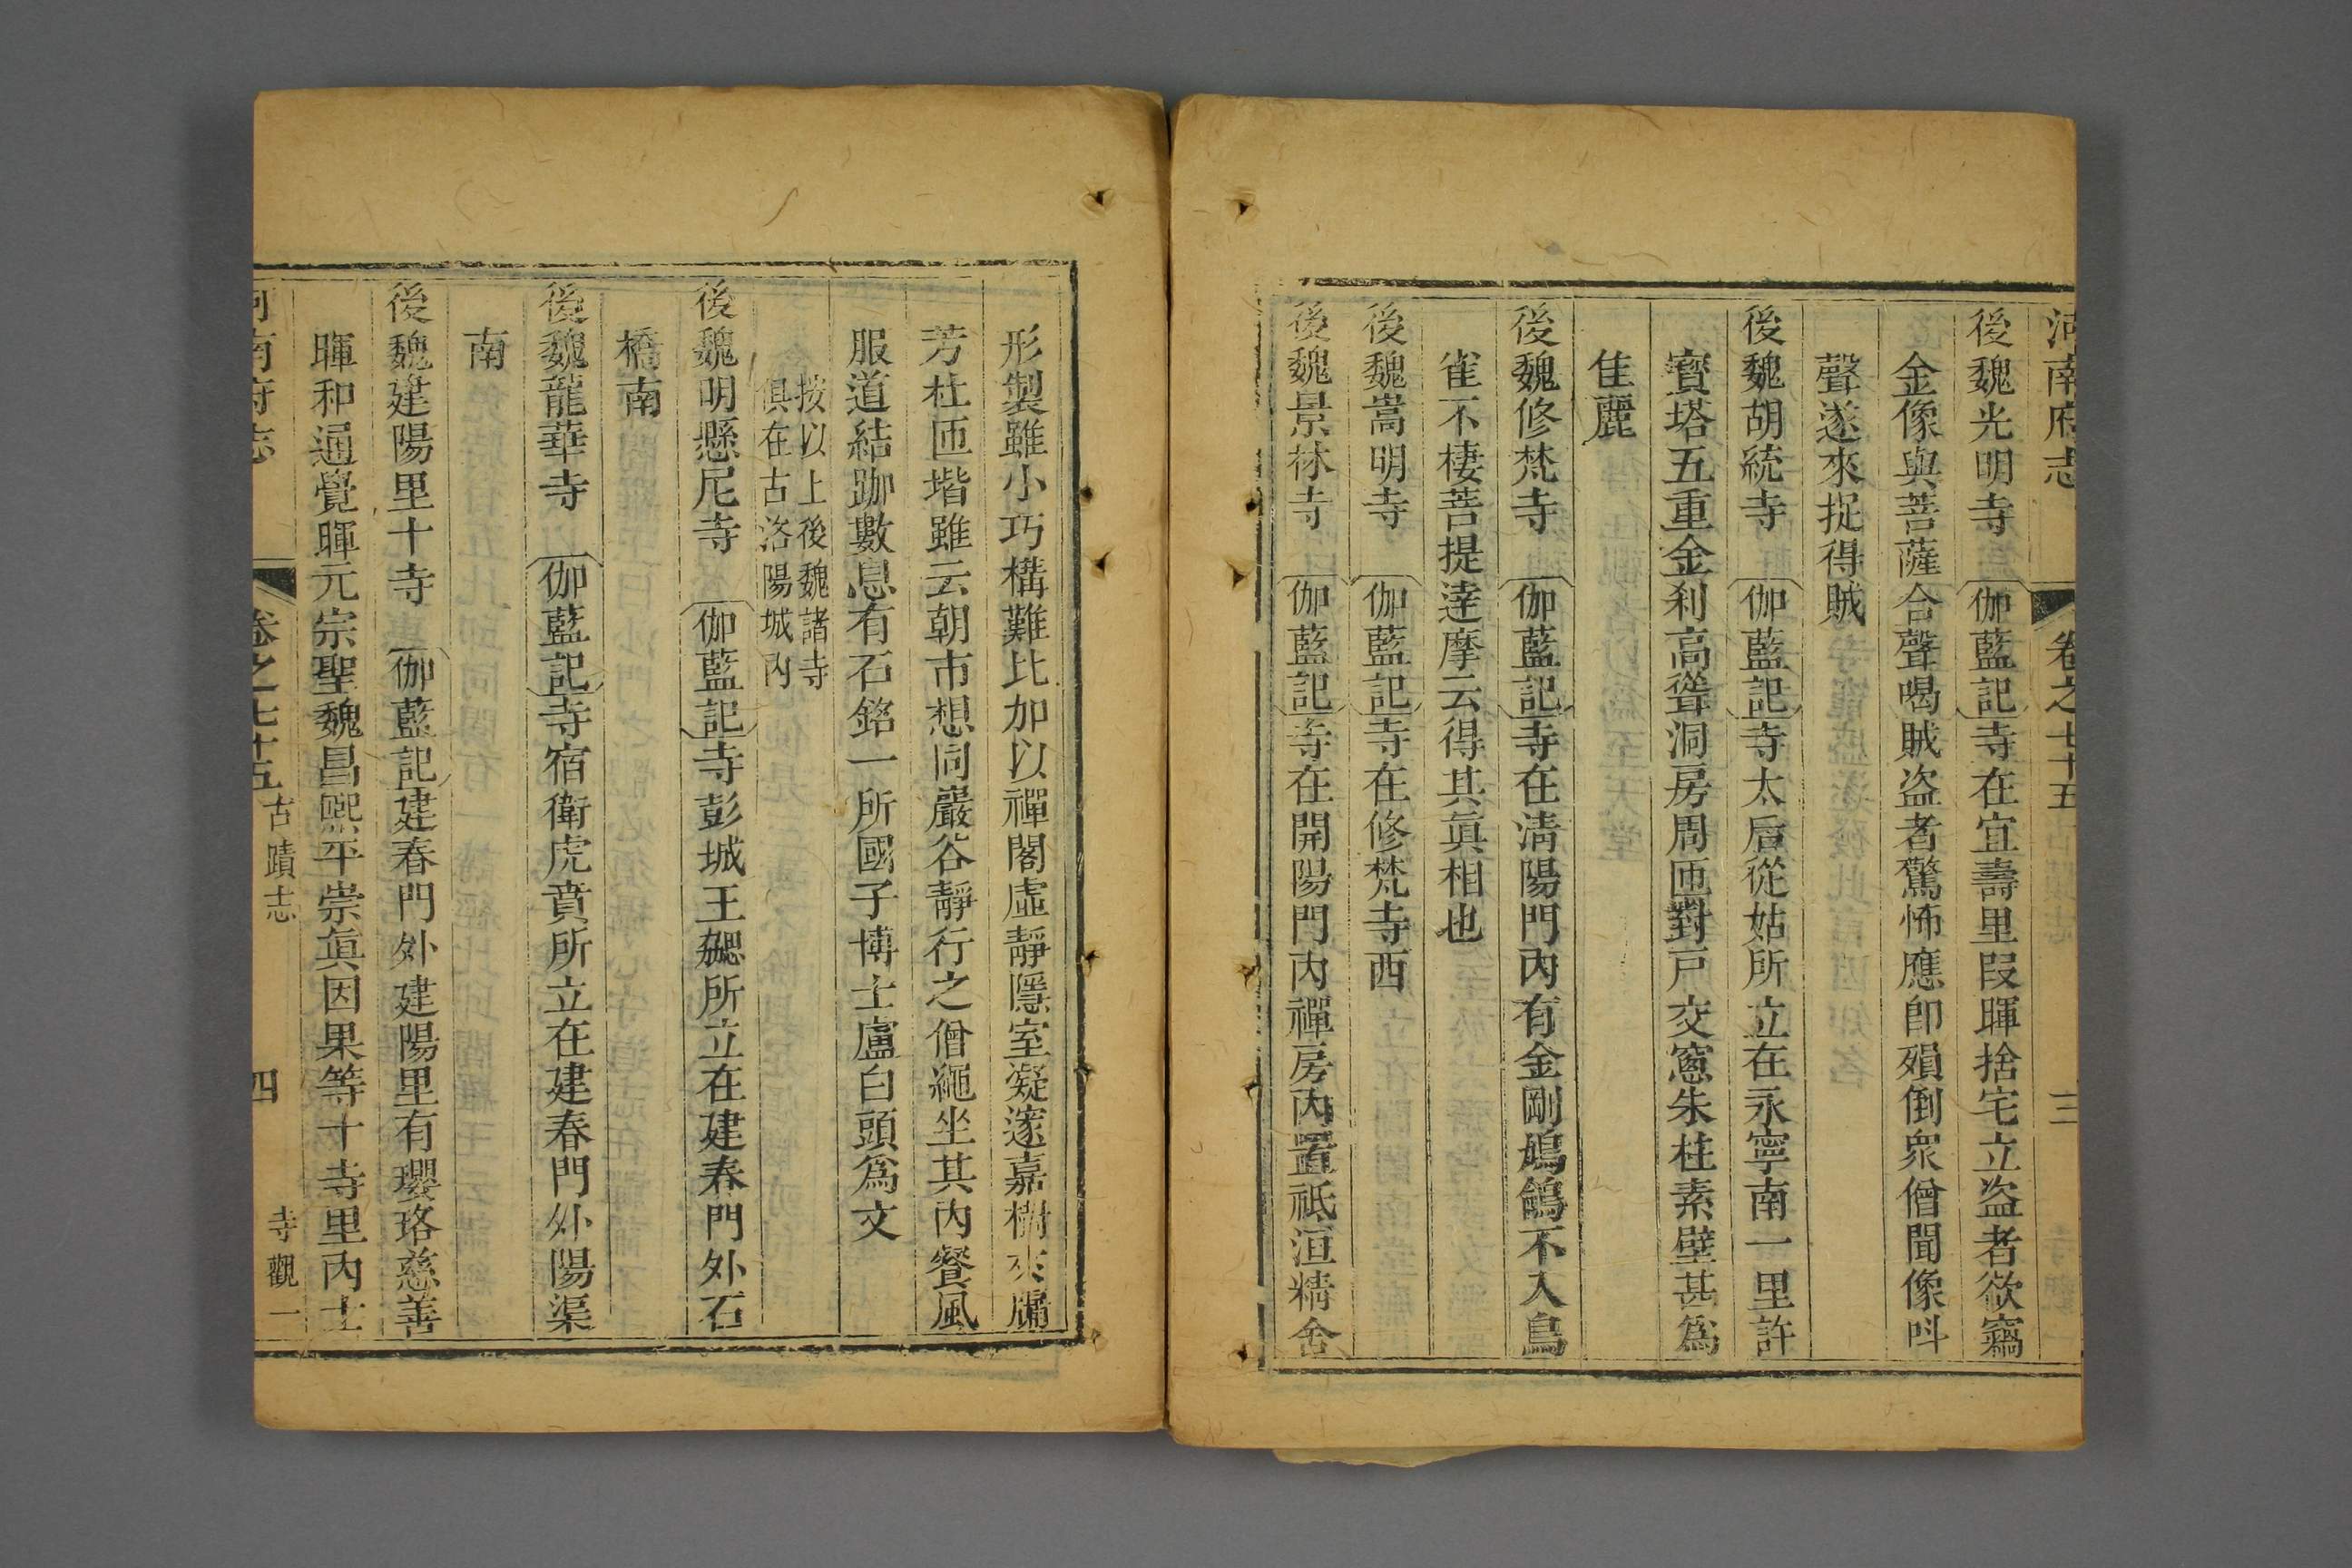 河南府志 卷之七十五 三
後魏光明寺 伽藍記寺在宜壽里段暉捨宅立盗者欲竊
金像與菩薩合聲喝賊盗者驚怖應卽殞倒衆僧聞像呌
聲遂來捉得賊
後魏胡統寺 伽藍記寺太后從姑所立在永寧南一里許
寳塔五重金刹高聳洞房周匝對戸交窻朱柱素壁甚爲
佳麗
後魏修梵寺 伽藍記寺在淸陽門內有金剛鳩鴿不入鳥
雀不棲菩提達摩云得其眞相也
後魏嵩明寺 伽藍記寺在修梵寺西
後魏景林寺 伽藍記寺在開陽門內禪房內置祗洹精舍
形製雖小巧構難比加以禪閣虛靜隱室凝邃嘉樹夾牖
芳杜匝堦雖云朝市想同巖谷靜行之僧繩坐其內餐風
服道結跏數息有石銘一所國子博士盧白頭爲文
按以上後魏諸寺
俱在古洛陽城內
後魏明懸尼寺 伽藍記寺彭城王勰所立在建春門外石
橋南
後魏龍華寺 伽藍記寺宿衛虎賁所立在建春門外陽渠
南
後魏建陽里十寺 伽藍記建春門外建陽里有瓔珞慈善
暉和通覺暉元宗聖魏昌熙平崇眞因果等十寺里內士
河南府志 卷之七十五 古蹟志 四 寺觀一